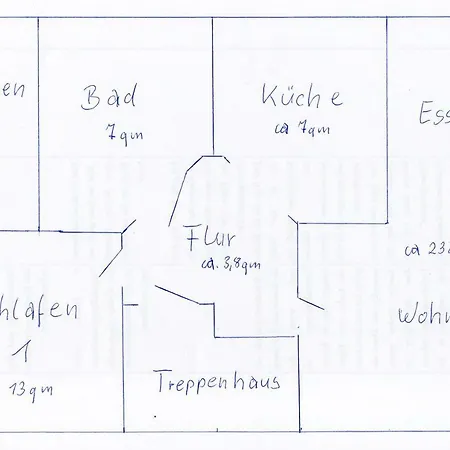 en
Bad
7qm
Küche
ca 7qm
Ess
Flur
ca. 3,8qm
ca 23q
hlafen
1
13qm
Wohn
Treppenhaus